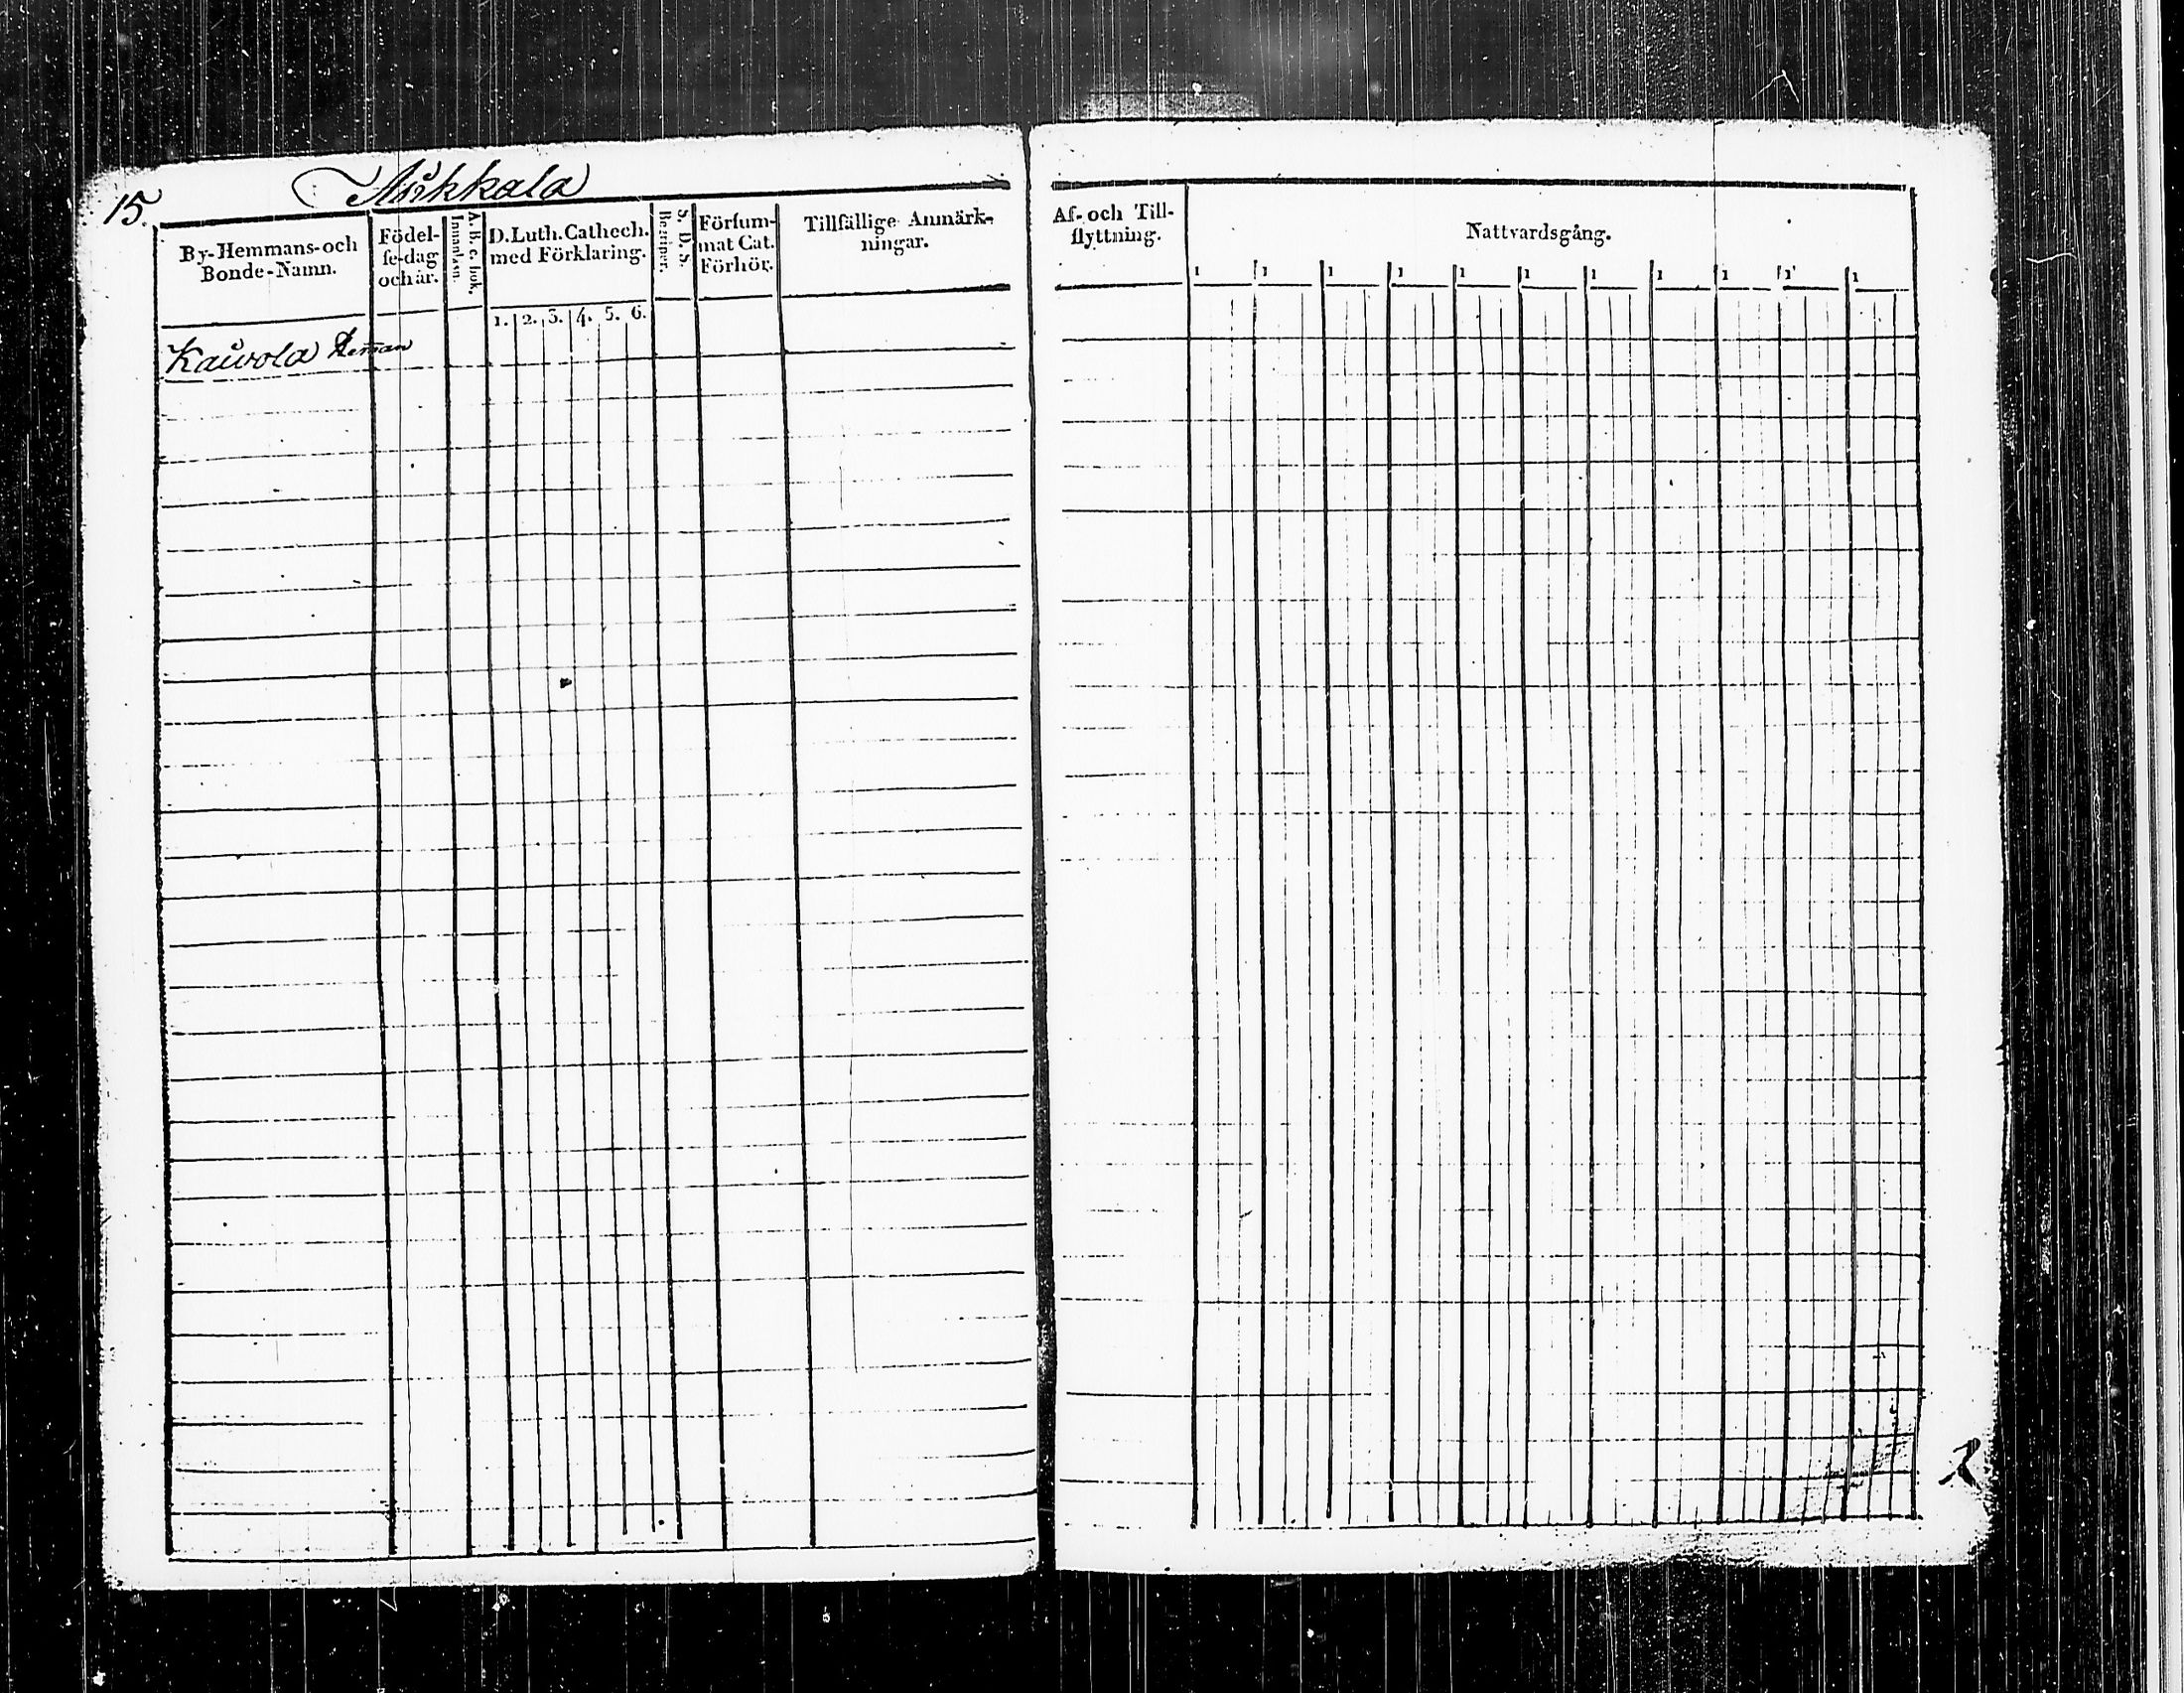 15.
Kauvola
By-Hemmans-och
Bonde-Namn.
Födel-
se-dag
och år.
A. B. c. bok.
Innanläsn.
D. Luth. Cathech.
med Förklaring.
1. 2. 3. 4. 5. 6.
S. D. S.
Begriper.
Försum-
mat Cat.
Förhör.
Tillfällige Anmärk-
ningar.
Af- och Till-
flyttning.
Nattvardsgång.
1 1 1 1 1 1 1 1 1 1 1